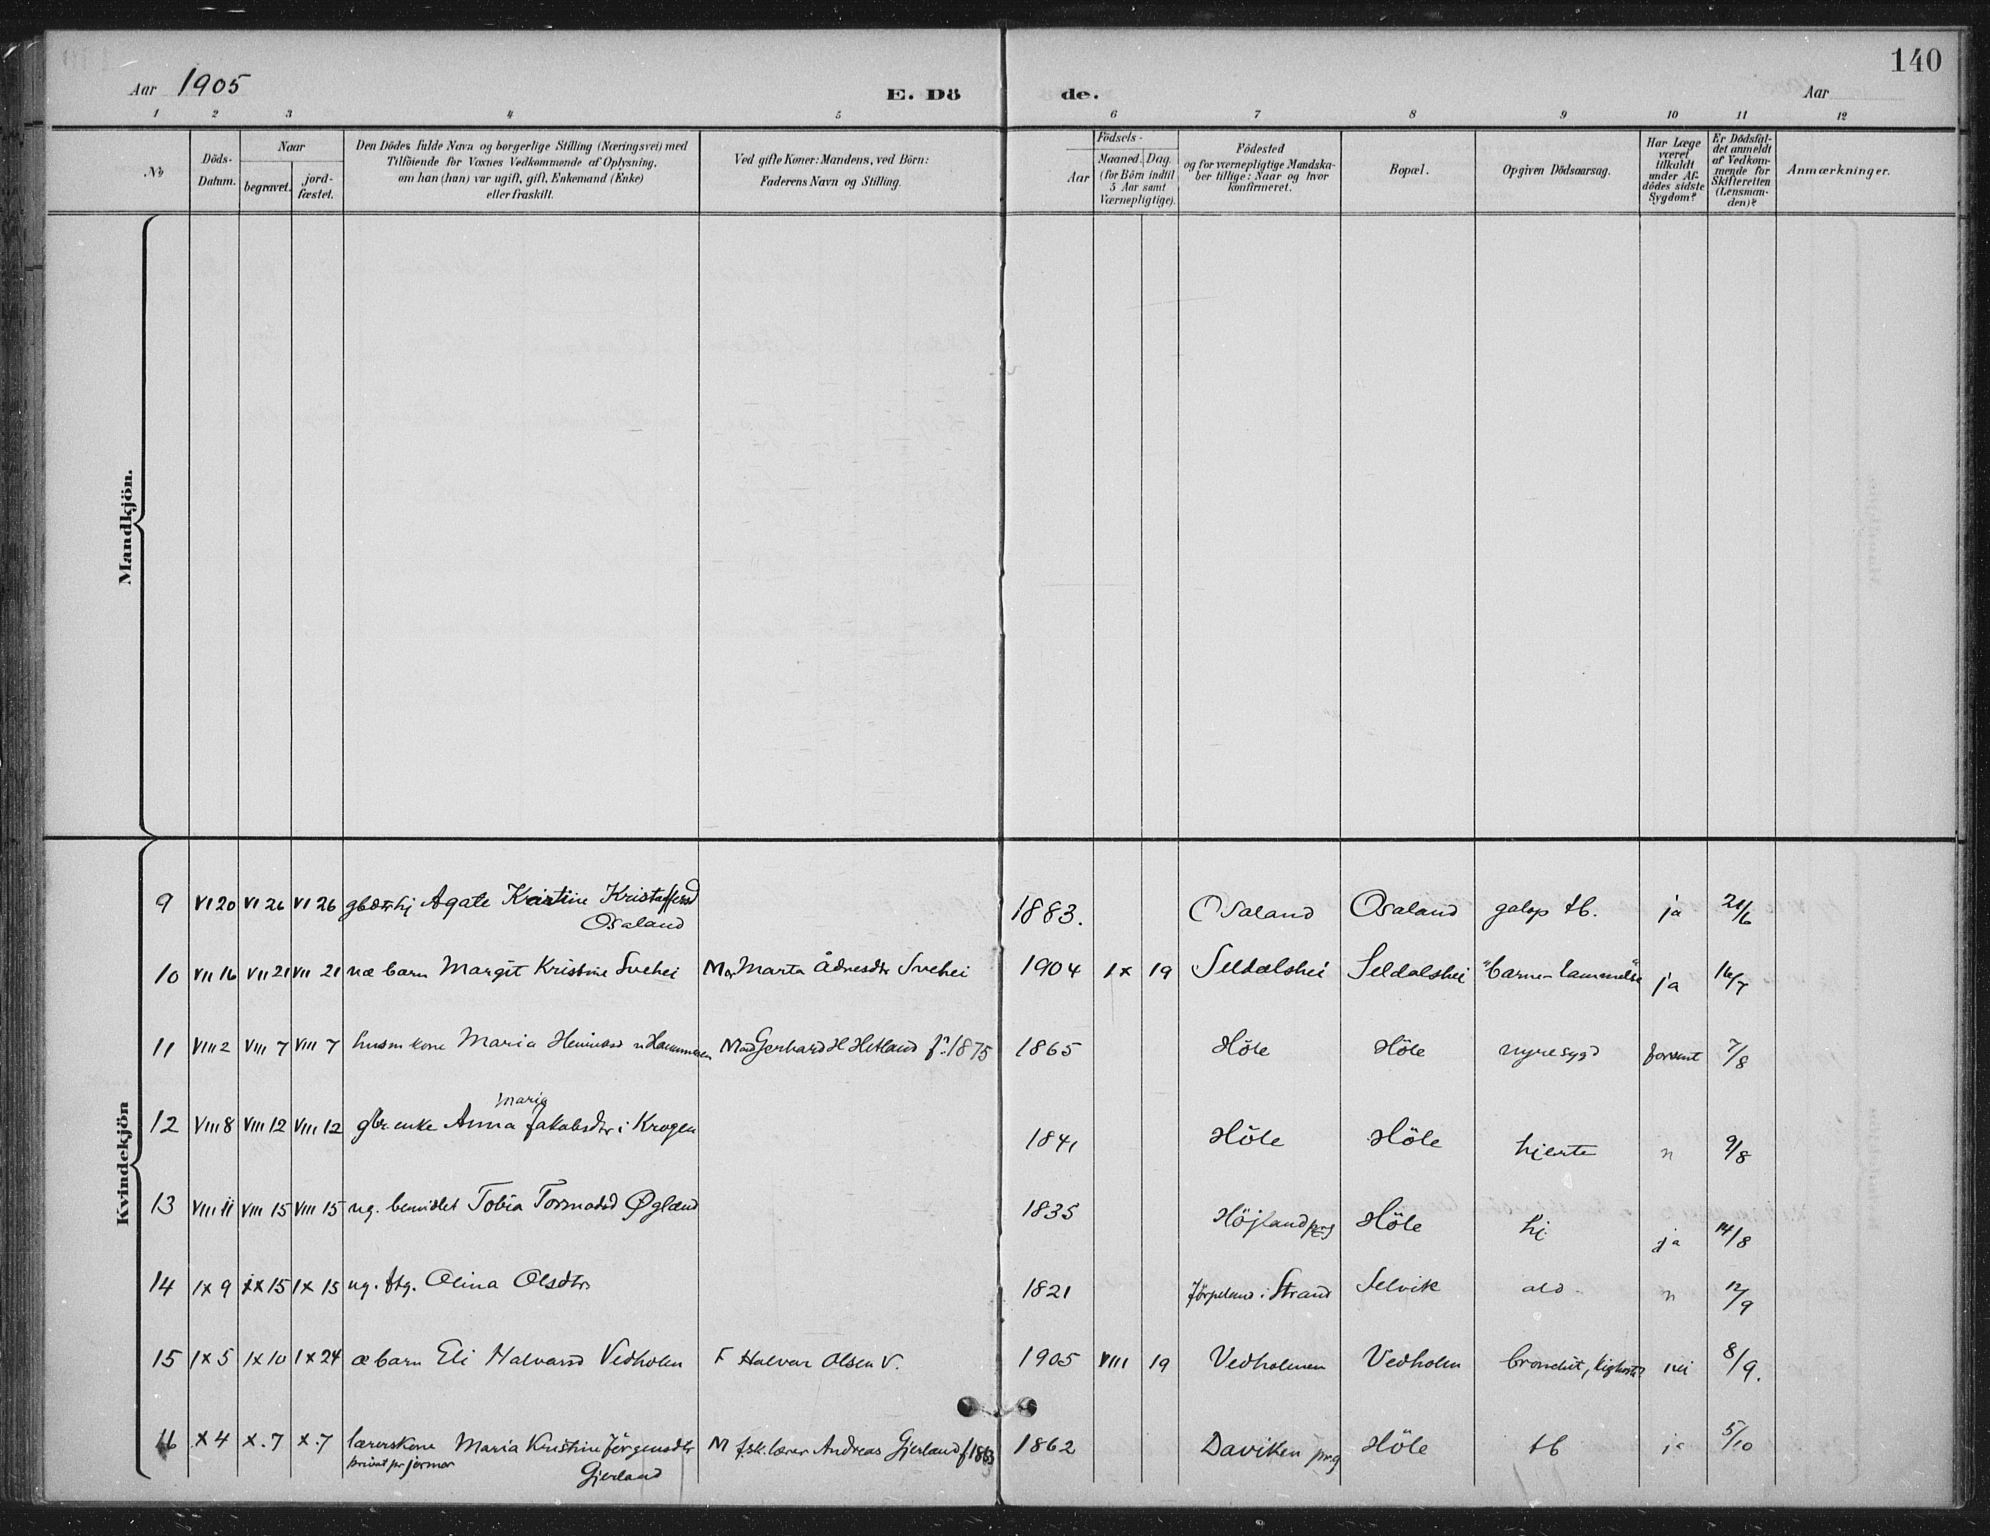 140
Aar 1905
E. Dö de.
Aar
1 2 3 4 5 6 7 8 9 10 11 12
No
Döds-Datum.
Naar
begravet.
jord-fæstet.
Den Dödes fulde Navn og borgerlige Stilling (Næringsvei) med
Tilföiende for Voxnes Vedkommende af Oplysning,
om han (hun) var ugift, gift, Enkemand (Enke)
eller fraskilt.
Ved gifte Koner: Mandens, ved Börn:
Faderens Navn og Stilling.
Födsels-
Aar
Maaned. Dag.
(for Börn indtil
5 Aar samt
Værnepligtige).
Födested
og for værnepligtige Mandska-
ber tillige: Naar og hvor
konfirmeret.
Bopæl.
Opgiven Dödsaarsag.
Har Læge
været
tilkaldt
under Af-
dödes sidste
Sygdom?
Er Dödsfal-
det anmeldt
af Vedkom-
mende for
Skifteretten
(Lensman-
den)?
Anmærkninger.
Mandkjön.
Kvindekjön
9 VI 20 VI 26 VI 26 Agate Kristine Kristoffersd 1883. Osaland Osaland galop tb. ja 21/6
Osaland
10 VII 16 VII 21 VII 21 uæ barn Margit Kristine Svehei Mor Marta Ådnesdtr Svehei 1904 IX 19 Seldalshei Seldalshei "barnelammelse" ja 16/7
11 VIII 2 VIII 7 VIII 7 husm kone Maria M Gerhard H Hetland f. 1875 1865 Höle Höle nyresygd forsent 7/8
Maria
12 VIII 8 VIII 12 VIII 12 gbr enke Anna Jakobsdtr i Krogen 1841 Höle Höle hjerte n 9/8
13 VIII 11 VIII 15 VIII 15 ug. bemidlet Tobia Øgland 1835 Höjland prg Höle hj ja 14/8
14 IX 9 IX 15 IX 15 ug. ftg. Olina Olsdtr 1821 Jörpeland i Strand Selvik ald. n 12/9
15 IX 5 IX 10 IX 24 æ barn Eli Halvorsd Vedholm F Halvor Olsen V. 1905 VIII 19 Vedholmen Vedholm bronchit, kighoste nei 8/9.
16 X 4 X. 7 X. 7 lærerskone Maria Kristine Jörgensdtr M f.sk.lærer Andreas Gjerland 1862 Daviken prg Höle tb ja 5/10
Gjerland